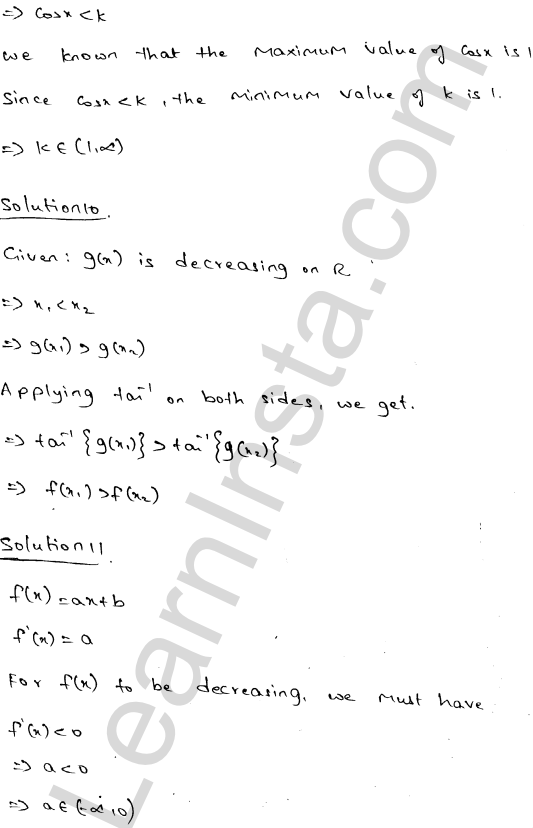 => Cosx < k
we known that the maximum value of Cosx is 1
Since Cosx < k , the minimum value of k is 1.
=> k ∈ (1,∞)
Solution 10.
Given : g(x) is decreasing on R
=> x₁ < x₂
=> g(x₁) > g(x₂)
Applying tan⁻¹ on both sides, we get.
=> tan⁻¹ {g(x₁)} > tan⁻¹ {g(x₂)}
=> f(x₁) > f(x₂)
Solution 11.
f(x) = ax+b
f'(x) = a
For f(x) to be decreasing, we must have
f'(x) < 0
=> a < 0
=> a ∈ (-∞, 0)
LearnInsta.com